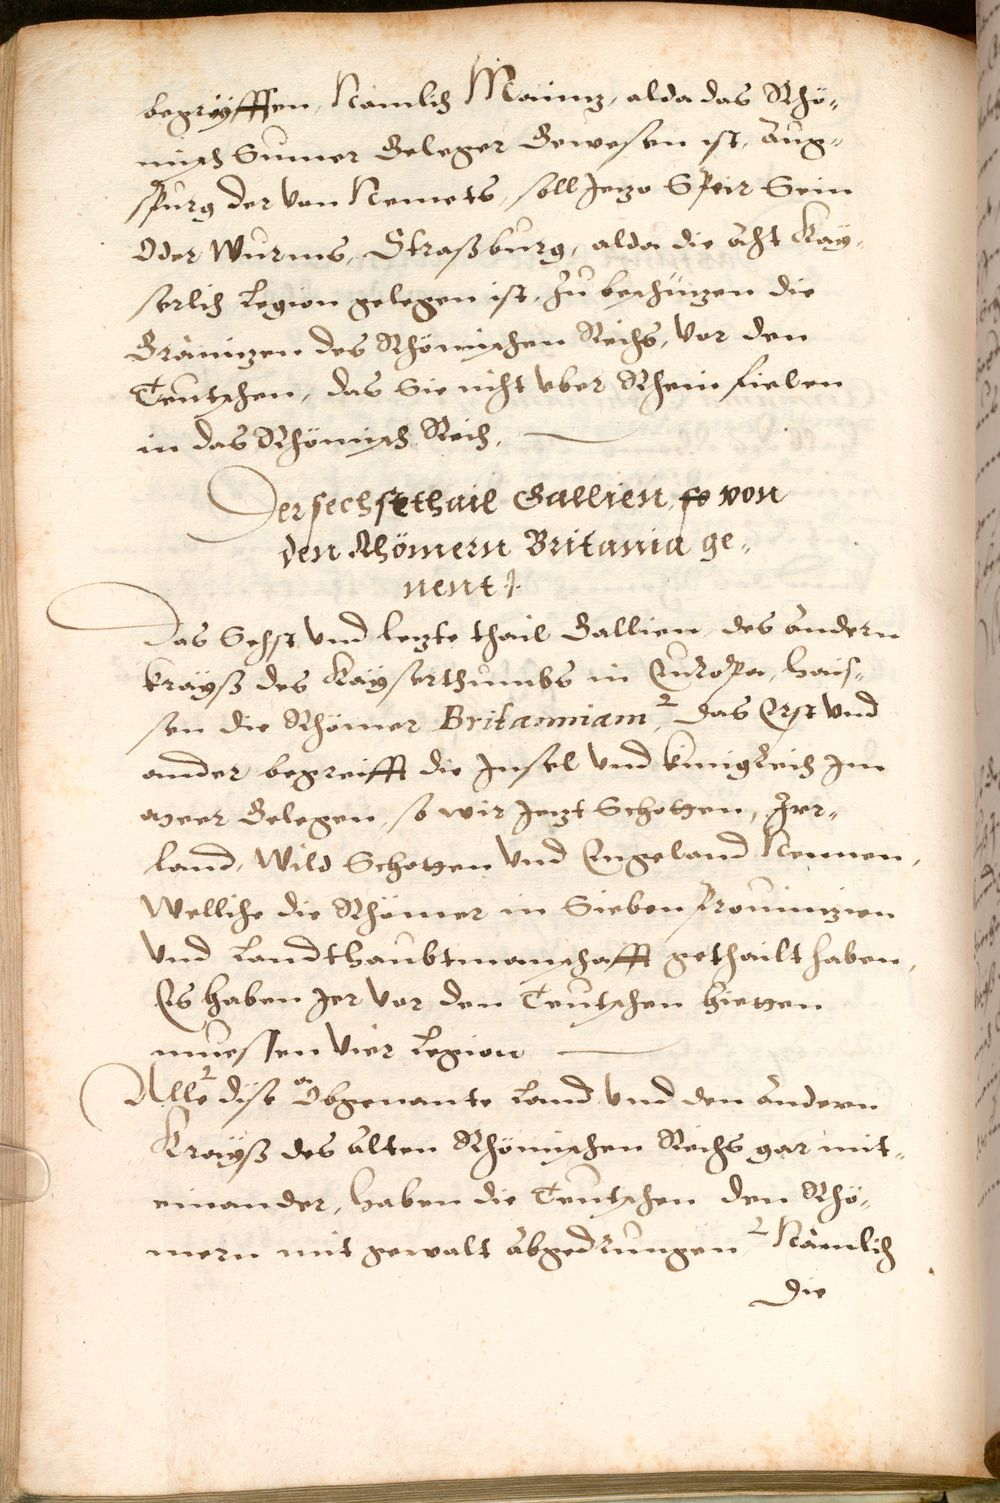 begryffen, Namlich Maintz, alda das Rhö-
misch Sumer Geleger Gewesen ist, Aug-
spurg der von Nemets, soll Jetzo Speir Sein
Oder Wurms, Straßburg, alda die acht Kay-
serlich Legion gelegen ist, Zu beschützen die
Gränitzen des Rhömischen Reichs, vor den
Teutschen, das Sie nicht vber Rhein fielen
in das Rhömisch Reich.
Der sechste thail Gallien, so von
den Rhömern Britania ge-
nent.
Das Sechst vnd letzte thail Gallien, des andern
Krayß des Kayserthumbs in Europa, hais-
sen die Rhömer Britanniam, das Erst vnd
ander begreifft die Insel vnd künigreich Im
Meer Gelegen, so wir Jetzt Schotten, Irr-
land, Wild Schotten vnd Engeland Nennen,
Welliche die Rhömer in Sieben prouintzien
vnd Landthaubtmanschafft gethailt haben,
Es haben Jer vor den Teutschen hietten
muessen vier Legion
Alle dise Obgenante Land vnd den andern
Krayß des alten Rhömischen Reichs gar mit-
einander, haben die Teutschen den Rhö-
mern mit gewalt abgedrungen, Nämlich
die